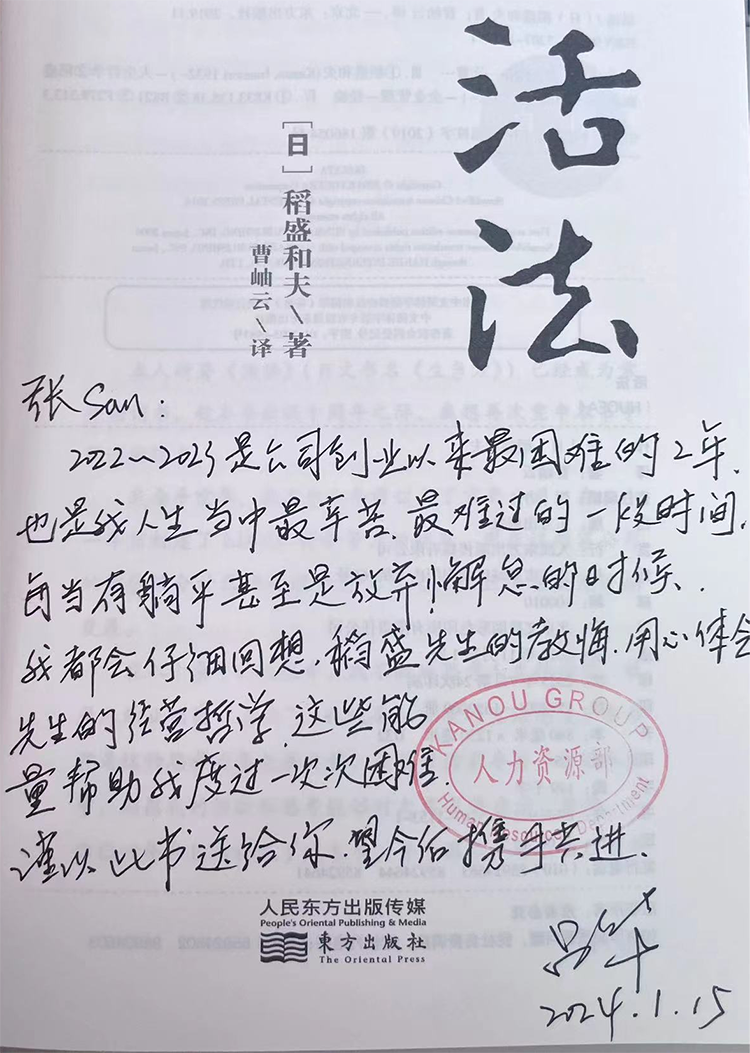 活法
[日]稻盛和夫\著
曹岫云\译
张San：
2022~2023是公司创业以来最困难的2年，
也是我人生当中最辛苦、最难过的一段时间，
每当有躺平甚至是放弃懈怠的时候，
我都会仔细回想，稻盛先生的教悔，用心体会
先生的经营哲学，这些能
量帮助我度过一次次困难。
谨以此书送给你，望今后携手共进。
KANOU GROUP
人力资源部
Human Resources Department
人民东方出版传媒
People's Oriental Publishing & Media
东方出版社
The Oriental Press
2024.1.15